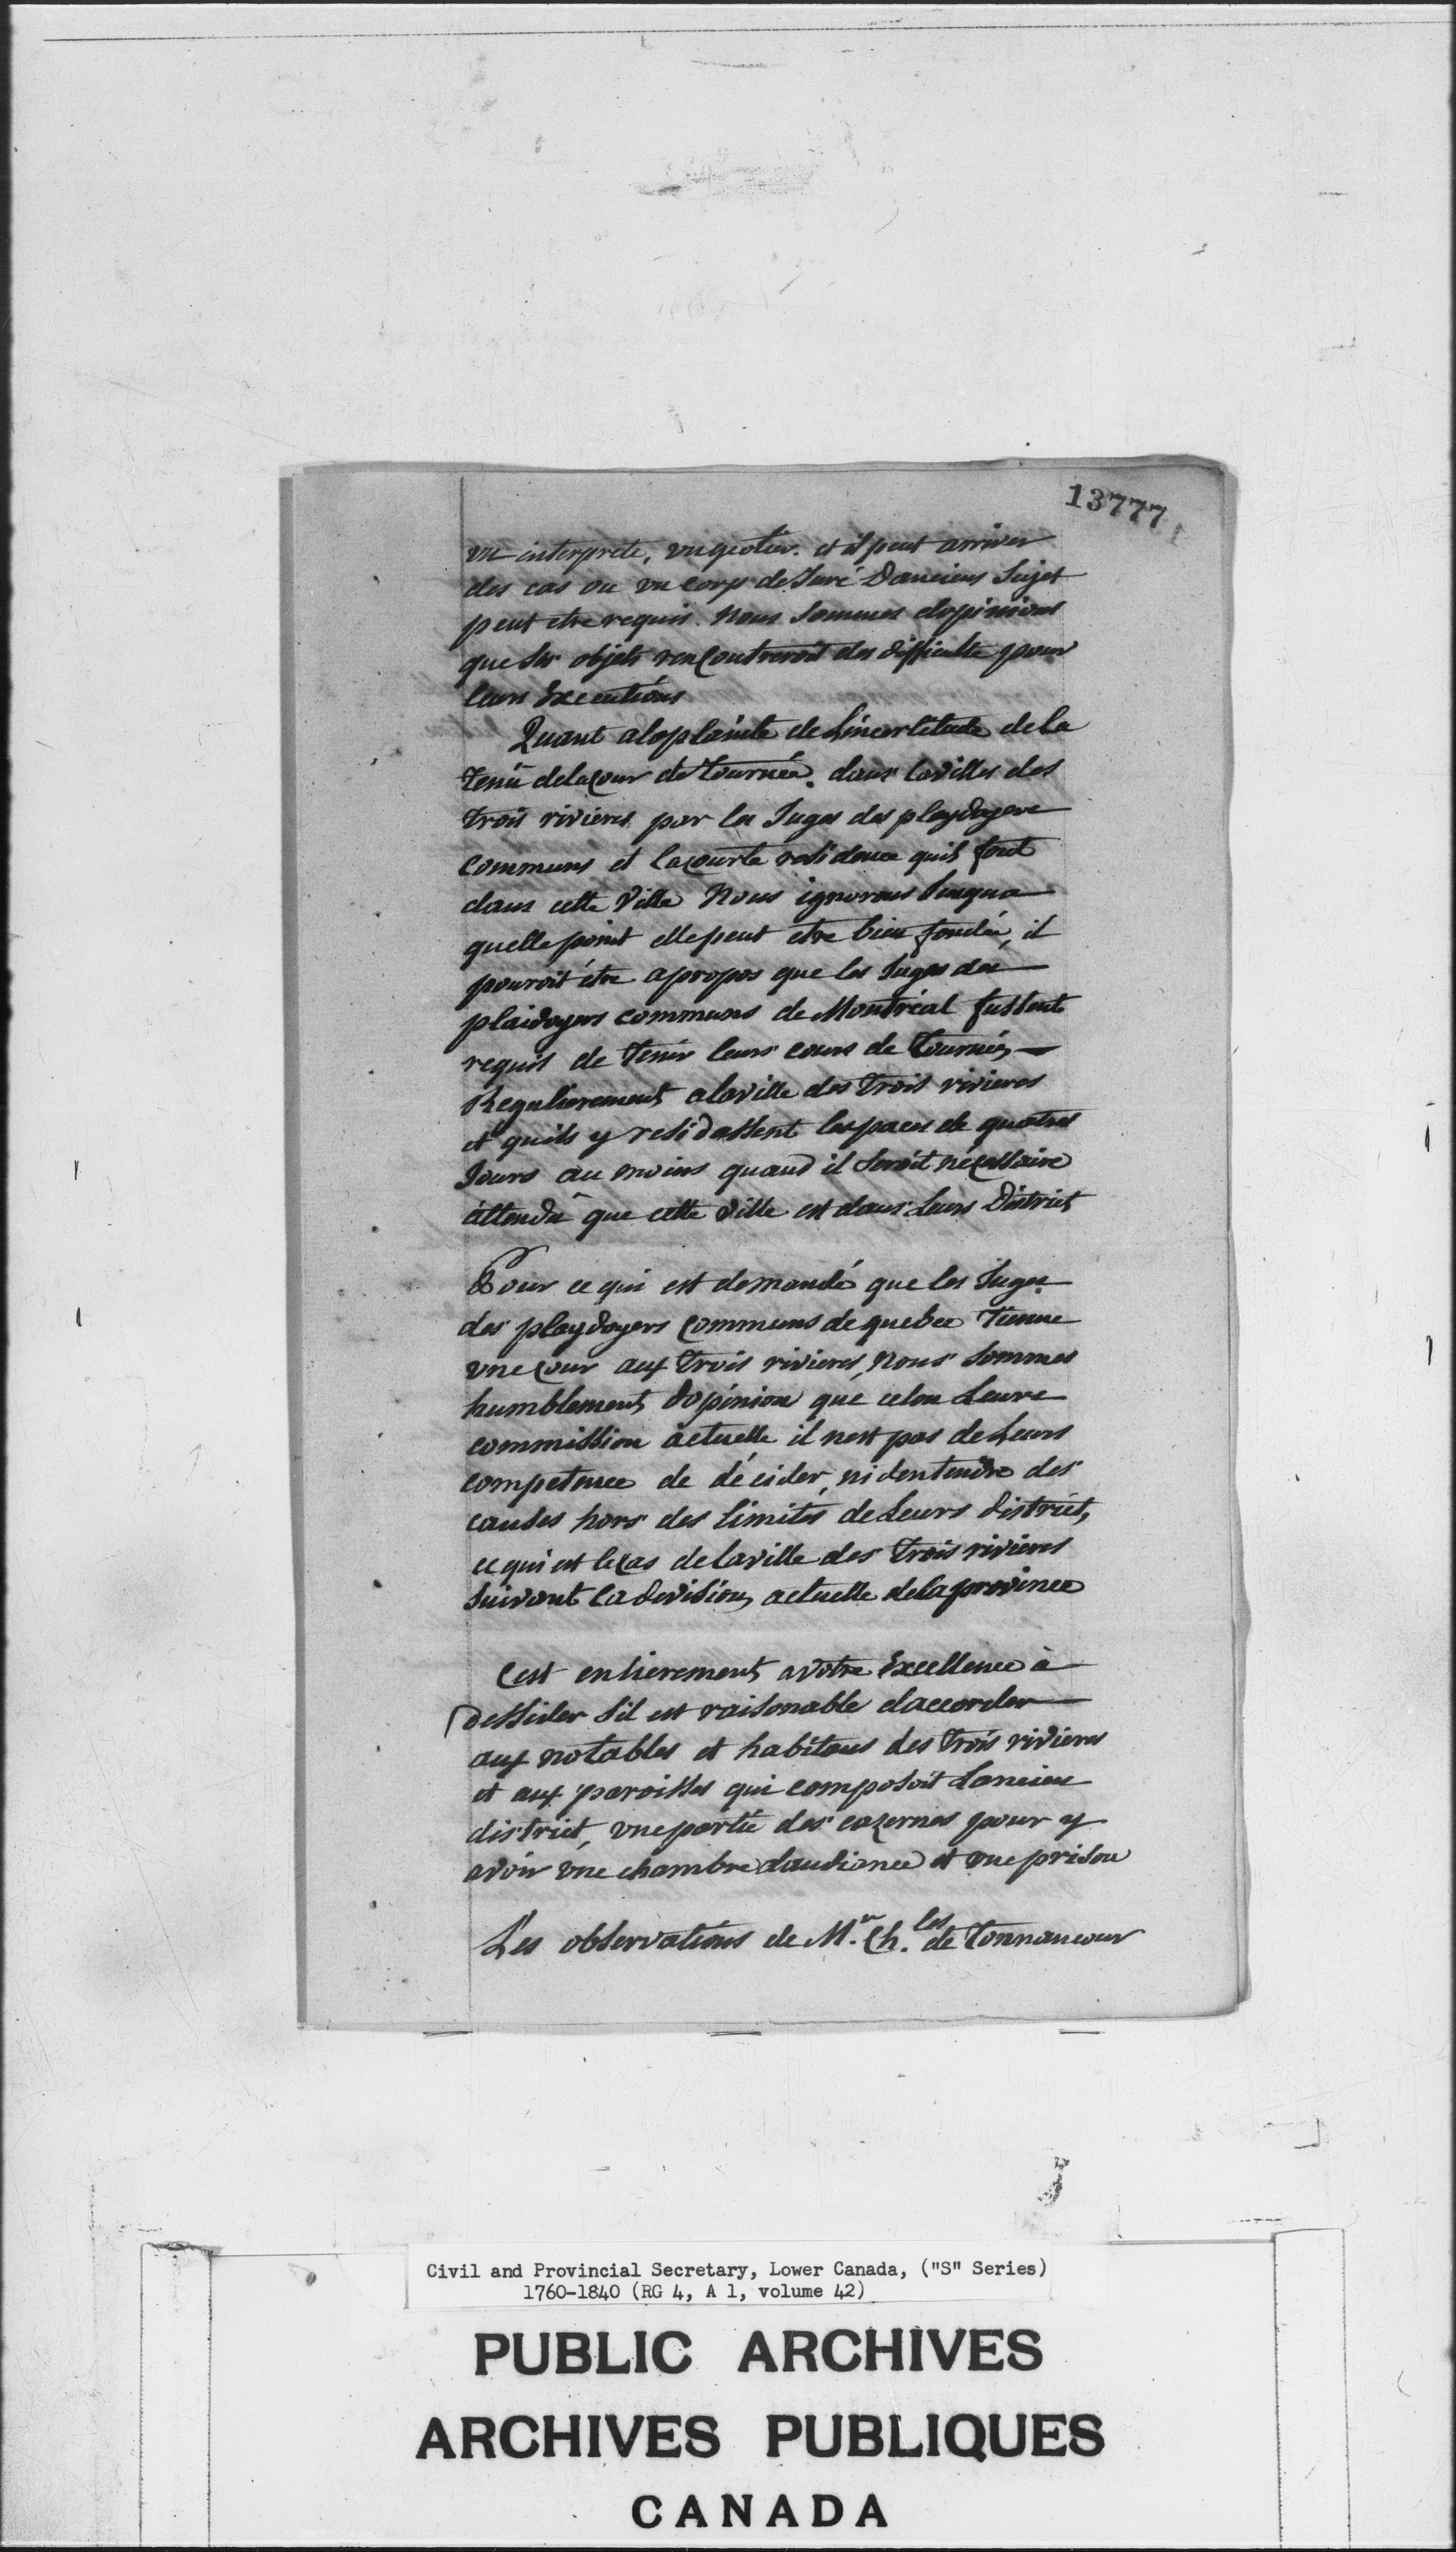 13777
un interprete, un geolier. et il peut arriver
des cas ou un corps de Juré Danciens Sujet
peut etre requis. Nous Sommes dopinions
que Ses objets rencontreront des difficulte pour
leurs Executions
Quant a la plainte de Lincertitude de la
tenû de la Cour de tournée. dans la villes des
trois rivieres par les Juges des playdoyers
Communs et la courte residence quils font
dans cette Ville Nous ignorons Jusqua
quelle point elle peut etre bien fondée, il
pouroit être apropos que les Juges des
plaidoyers communs de Montréal fussent
requis de tenir leurs cours de tournées
Regulierement a la ville des trois rivieres
et quils y residassent lespaces de quatres
Jours au moins quand il Seroit nécessaire
attendû que cette ville est dans Leurs District
Pour ce qui est demandé que les Juges
des playdoyers Communs de quebec Tienne
une Cour aux trois rivieres, nous Sommes
humblement dopinion que celon Leurs
commission actuelle il nest pas de Leurs
competence de décider, ni dentendre des
causes hors des limites de Leurs district,
ce qui est le Cas de la ville des trois rivieres
Suivant La division actuelle de la province
Cest entierement a votre Excellence à
dessider Sil est raisonable daccorder
aux notables et habitans des trois rivieres
et aux paroisses qui composoit Lancien
district, une partie des cazernes pour y
avoir une chambre daudiance et une prison
Les observations de M.r Ch.les de Tonnancour
Civil and Provincial Secretary, Lower Canada, ("S" Series)
1760-1840 (RG 4, A 1, volume 42)
PUBLIC ARCHIVES
ARCHIVES PUBLIQUES
CANADA